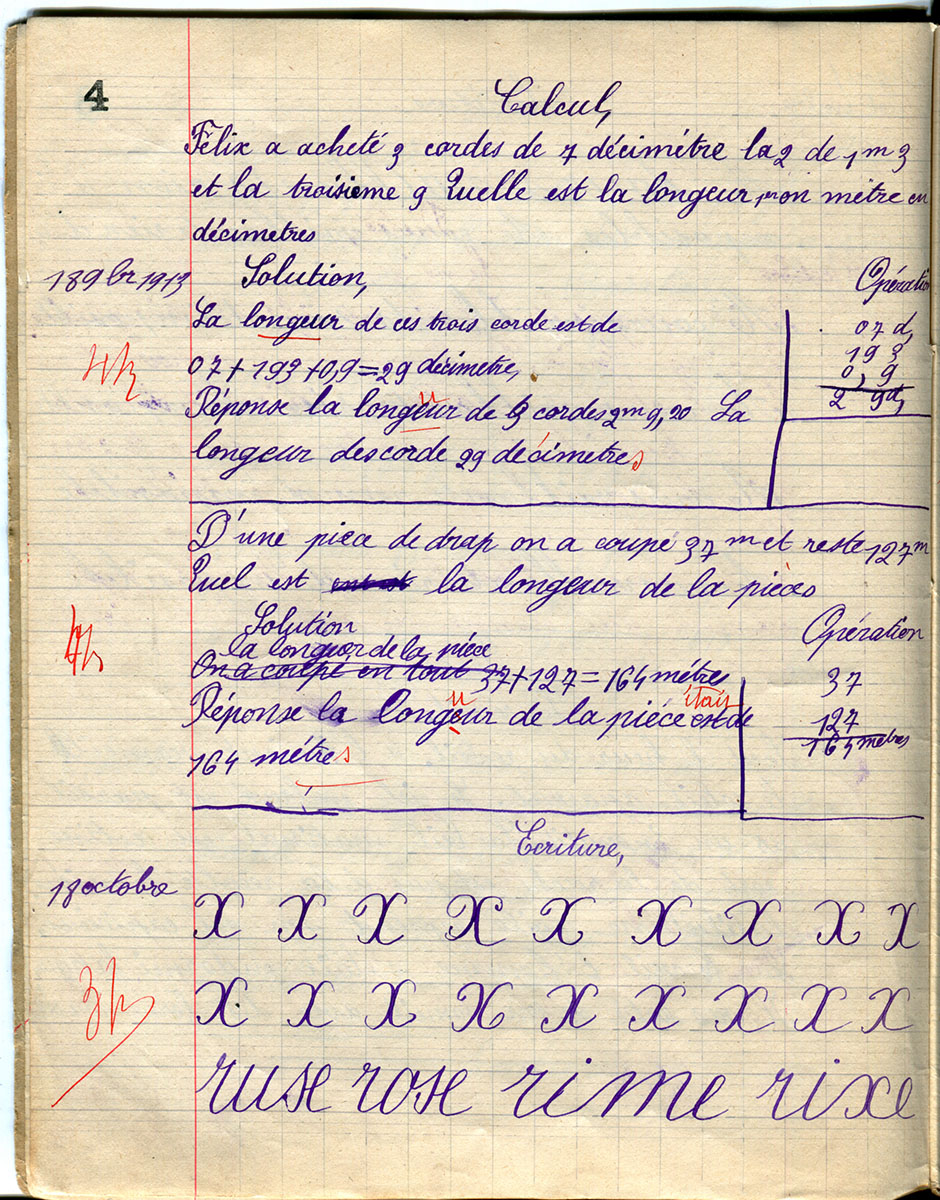 4
Calcul,
Félix a acheté 3 cordes de 7 décimétre la 2 de 1m3
et la troisieme 9 Quelle est la longeur, en mètre en
décimetres
189br 1913
Solution,
Opération
La longeur de ces trois corde est de
07 d,
07+193+0,9=29 décimetre,
193
0,9
Réponse la longueur de 3 cordes 2m9,20 La
2 9d,
longeur des corde 29 décimetres
D'une piéce de drap on a coupé 37m et reste 127m
Quel est la longeur de la pièces
Solution
Opération
la longuor de la piéce
On a coupé en tout 37+127=164 métres
37
était
Réponse la longueur de la piéce est de
127
164 métres
164 métres
Ecriture,
18 octobre
X X X X X X X X X
X X X X X X X X X
ruse rose rime rixe